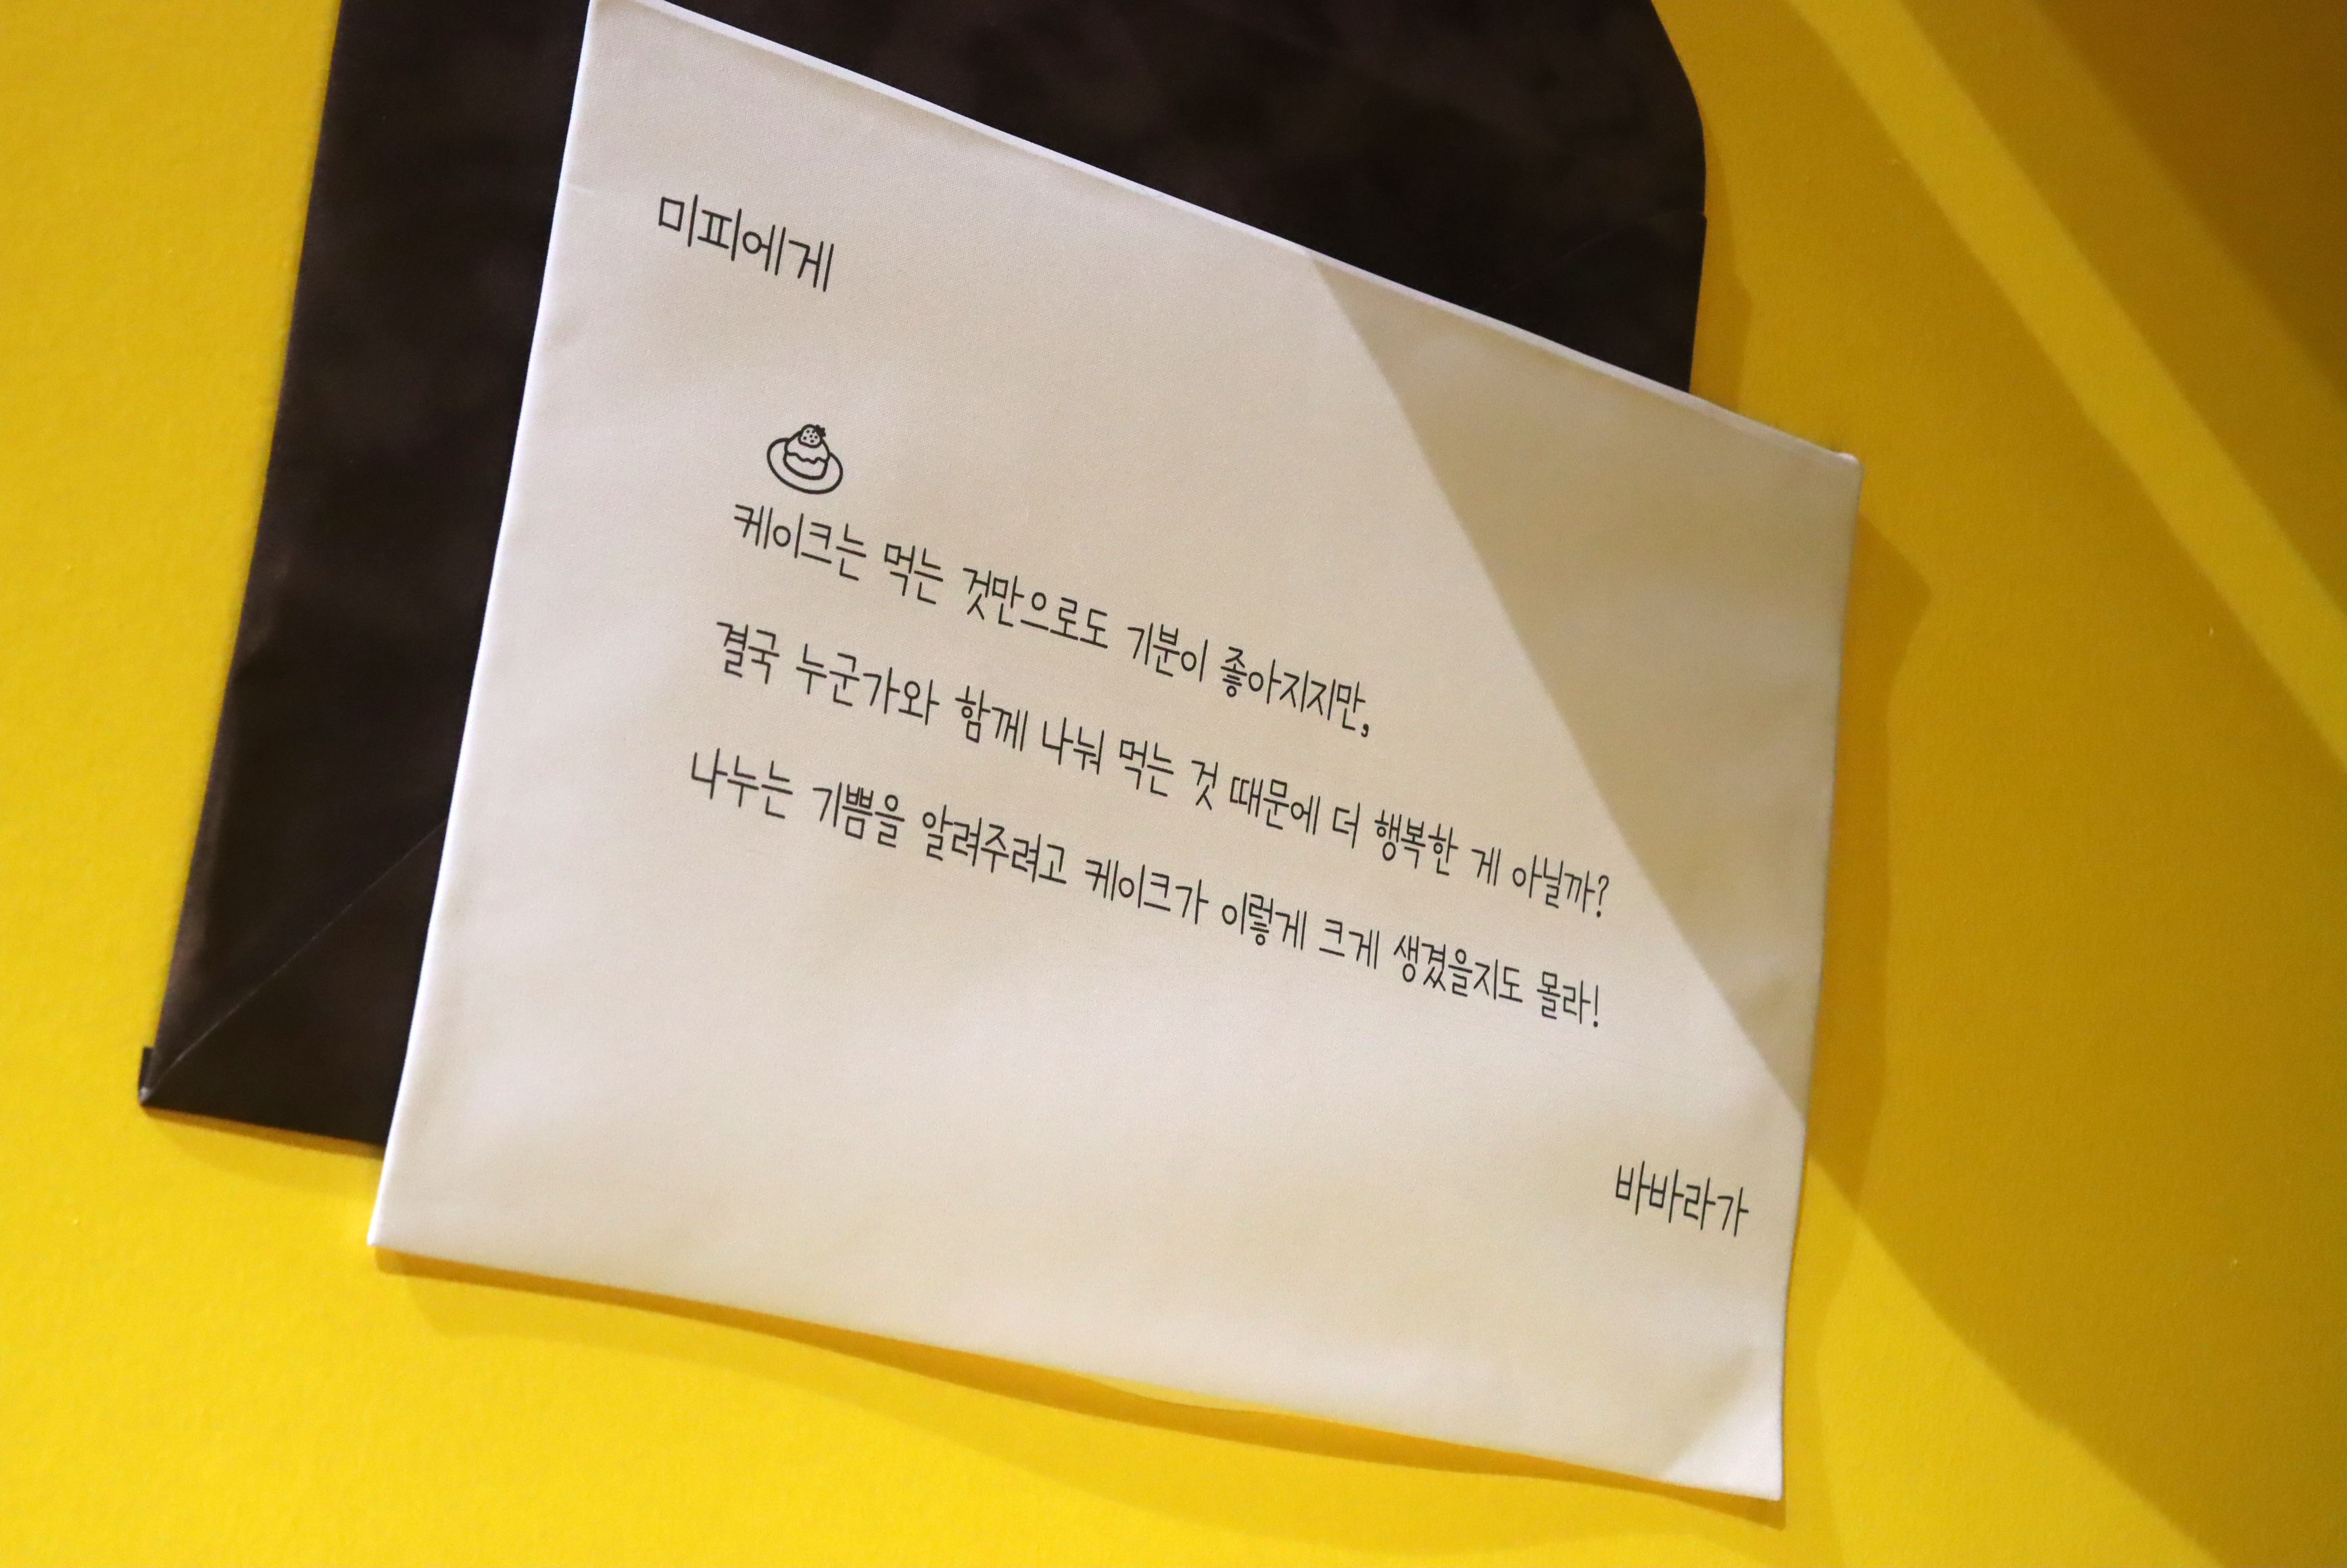 미피에게
케이크는 먹는 것만으로도 기분이 좋아지지만,
결국 누군가와 함께 나눠 먹는 것 때문에 더 행복한 게 아닐까?
나누는 기쁨을 알려주려고 케이크가 이렇게 크게 생겼을지도 몰라!
바바라가